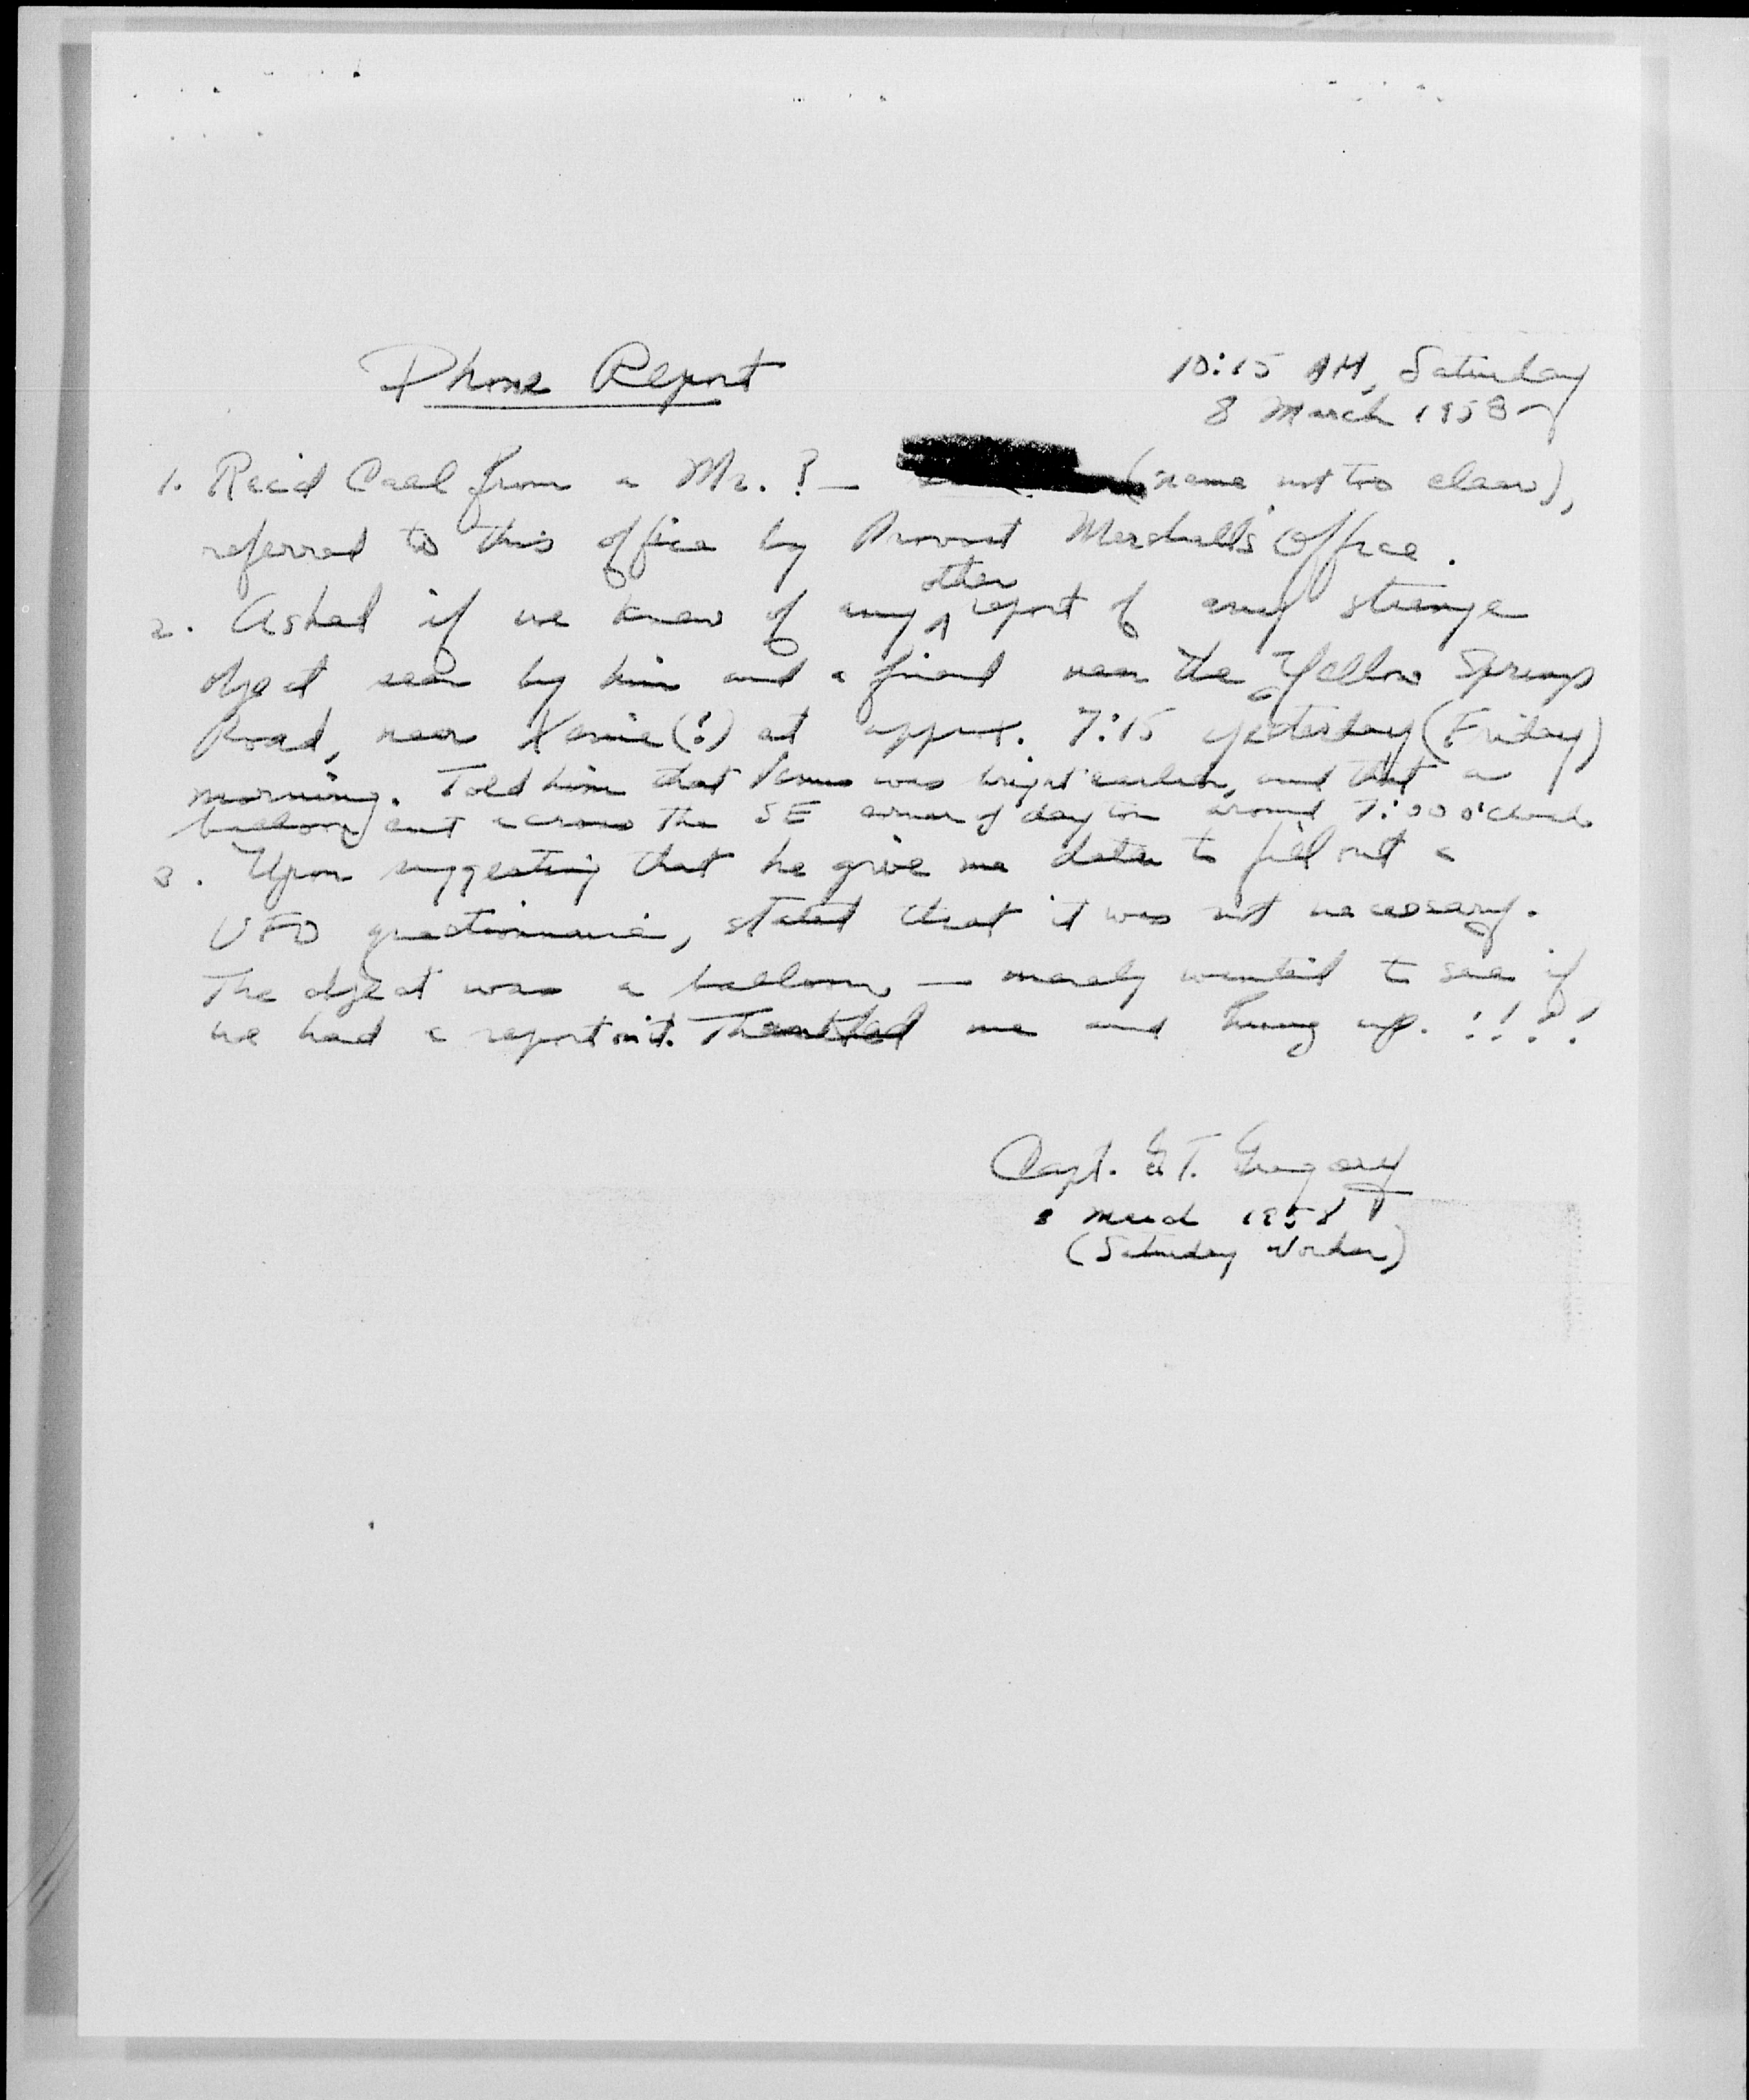 Phone Report
10:15 AM, Saturday
8 March 1958
1. Rec'd Call from a Mr. ? — (name not too clear),
referred to this office by Provost Marshall's Office.
2. Asked if we knew of any other report of any strange
object seen by him and a friend near the Yellow Springs
Road, near Xenia (?) at approx. 7:15 yesterday (Friday)
morning. Told him that Venus was bright earlier, and that a
balloon went across the SE corner of dayton around 7:00 o'clock
3. Upon suggesting that he give me data to fill out a
UFO questionnaire, stated that it was not necessary.
The object was a balloon — merely wanted to see if
we had a report on it. Thanked me and hung up. !!?!
Capt. G.T. Gregory
8 March 1958
(Saturday Worker)